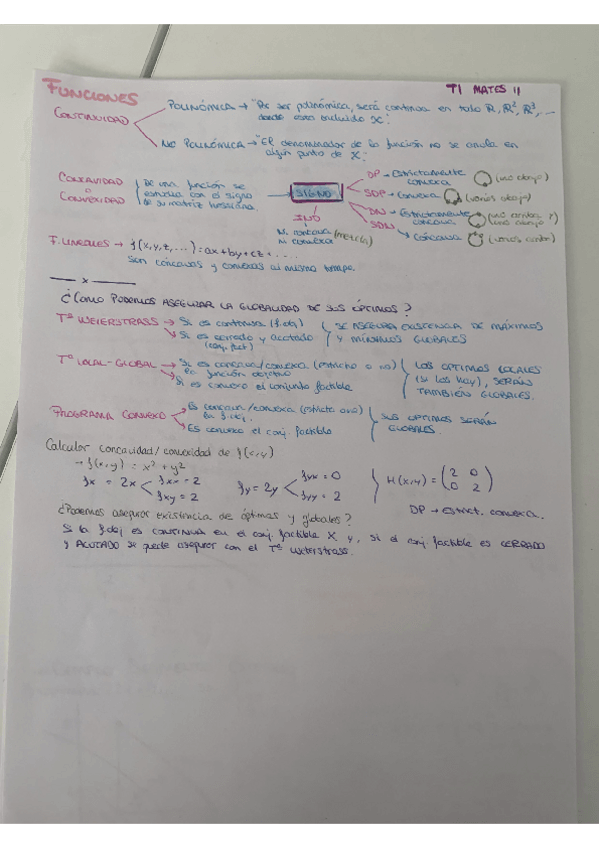 FUNCIONES
T1 MATES II
CONTINUIDAD
POLINÓMICA → "Por ser polinómica, será continua en todo R, R², R³, ...
donde está incluido X."
NO POLINÓMICA → "El denominador de la función no se anula en
algún punto de X."
CONCAVIDAD
o
CONVEXIDAD
De una función se
estudia con el signo
de su matriz hessiana.
SIGNO
DP → Estrictamente
convexa (uno abajo)
SDP → Convexa (varios abajo)
DN → Estrictamente
cóncava
SDN
Cóncava (varios arriba)
IND
Ni cóncava
ni convexa
F. LINEALES → f(x,y,z,...) = ax+by+cz+....
Son cóncavas y convexas al mismo tiempo.
x
¿CÓMO PODEMOS ASEGURAR LA GLOBALIDAD DE SUS ÓPTIMOS?
Tª WEIERSTRASS → Si es continua (f.obj)
Si es cerrado y acotado
(conj. fact)
SE ASEGURA EXISTENCIA DE MÁXIMOS
Y MÍNIMOS GLOBALES
Tª LOCAL-GLOBAL → Si es cóncava/convexa (estricta o no)
la función objetivo
Si es convexo el conjunto factible
LOS ÓPTIMOS LOCALES
(si los hay), SERÁN
TAMBIÉN GLOBALES.
PROGRAMA CONVEXO
Es cóncava/convexa (estricta o no)
Es convexo el conj. factible
SUS ÓPTIMOS SERÁN
GLOBALES.
Calcular concavidad/convexidad de f(x,y)
→ f(x,y) = x² + y²
fx = 2x
fxx = 2
fxy = 2
fy = 2y
fyx = 0
fyy = 2
H(x,y) = (2 0
0 2)
DP → estrict. convexa.
¿Podemos asegurar existencia de óptimos y globales?
Si la f.obj es CONTINUA en el conj. factible X y, si el conj. factible es CERRADO
y ACOTADO se puede asegurar con el Tª Weierstrass.